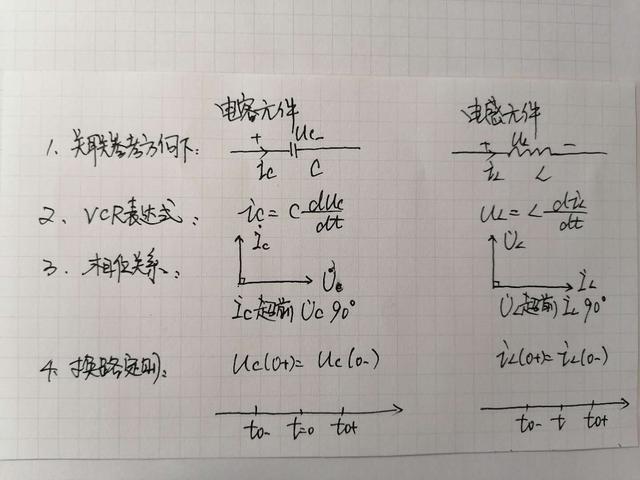 电容元件 电感元件
1. 关联参考方向下: + uc - ic C + uL - iL L
2. VCR表达式: ic = C duc/dt uL = L diL/dt
3. 相位关系: İc U̇c İc超前U̇c 90° U̇L İL U̇L超前İL 90°
4. 换路定则: uc(0+) = uc(0-) iL(0+) = iL(0-)
t0- t=0 t0+ t0- t t0+